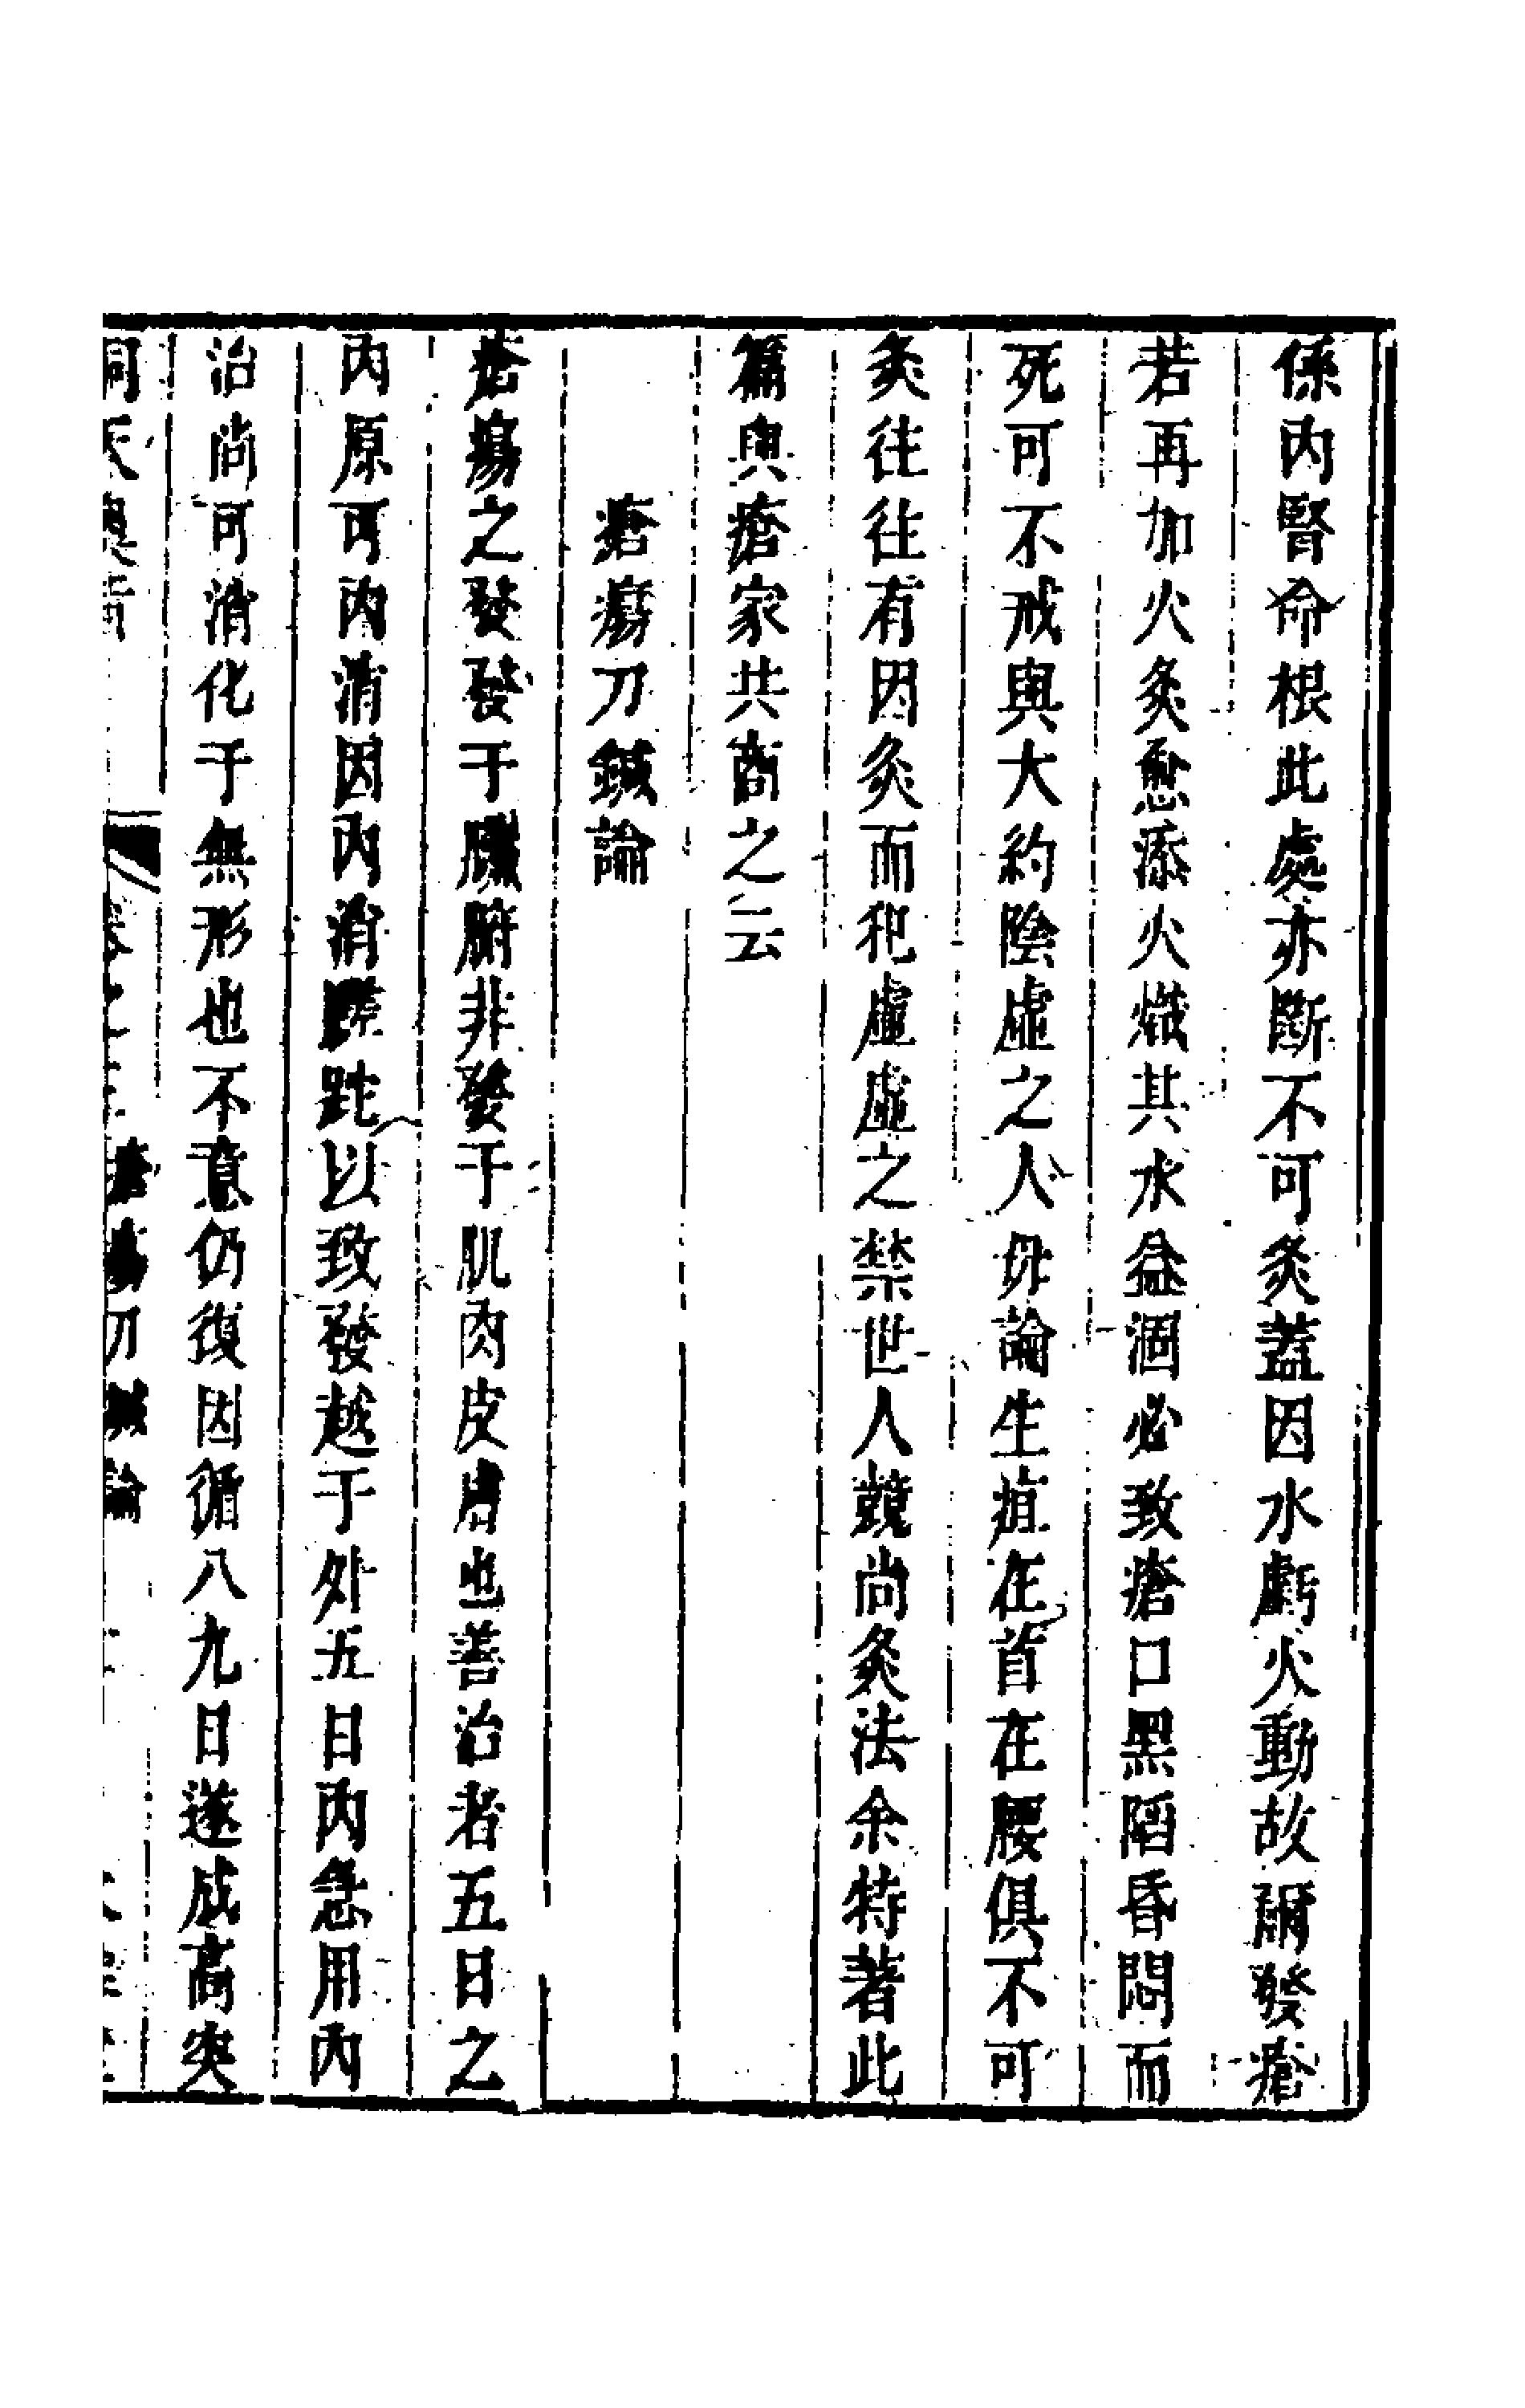 係內腎命根此處亦斷不可灸蓋因水虧火動故爾發瘡
若再加火灸愈添火熾其水益涸必致瘡口黑陷昏悶而
死可不戒與大約陰虛之人毋論生疽在首在腰俱不可
灸往往有因灸而犯虛虛之禁世人競尚灸法余特著此
篇與瘡家共商之云
瘡瘍刀鍼論
瘡瘍之發發于臟腑非發于肌肉皮膚也善治者五日之
內原可內消因內消蹉跎以致發越于外五日內急用內
治尚可消化于無形也不意仍復因循八九日遂成高突
洞天奧旨 卷之 瘡瘍刀鍼論